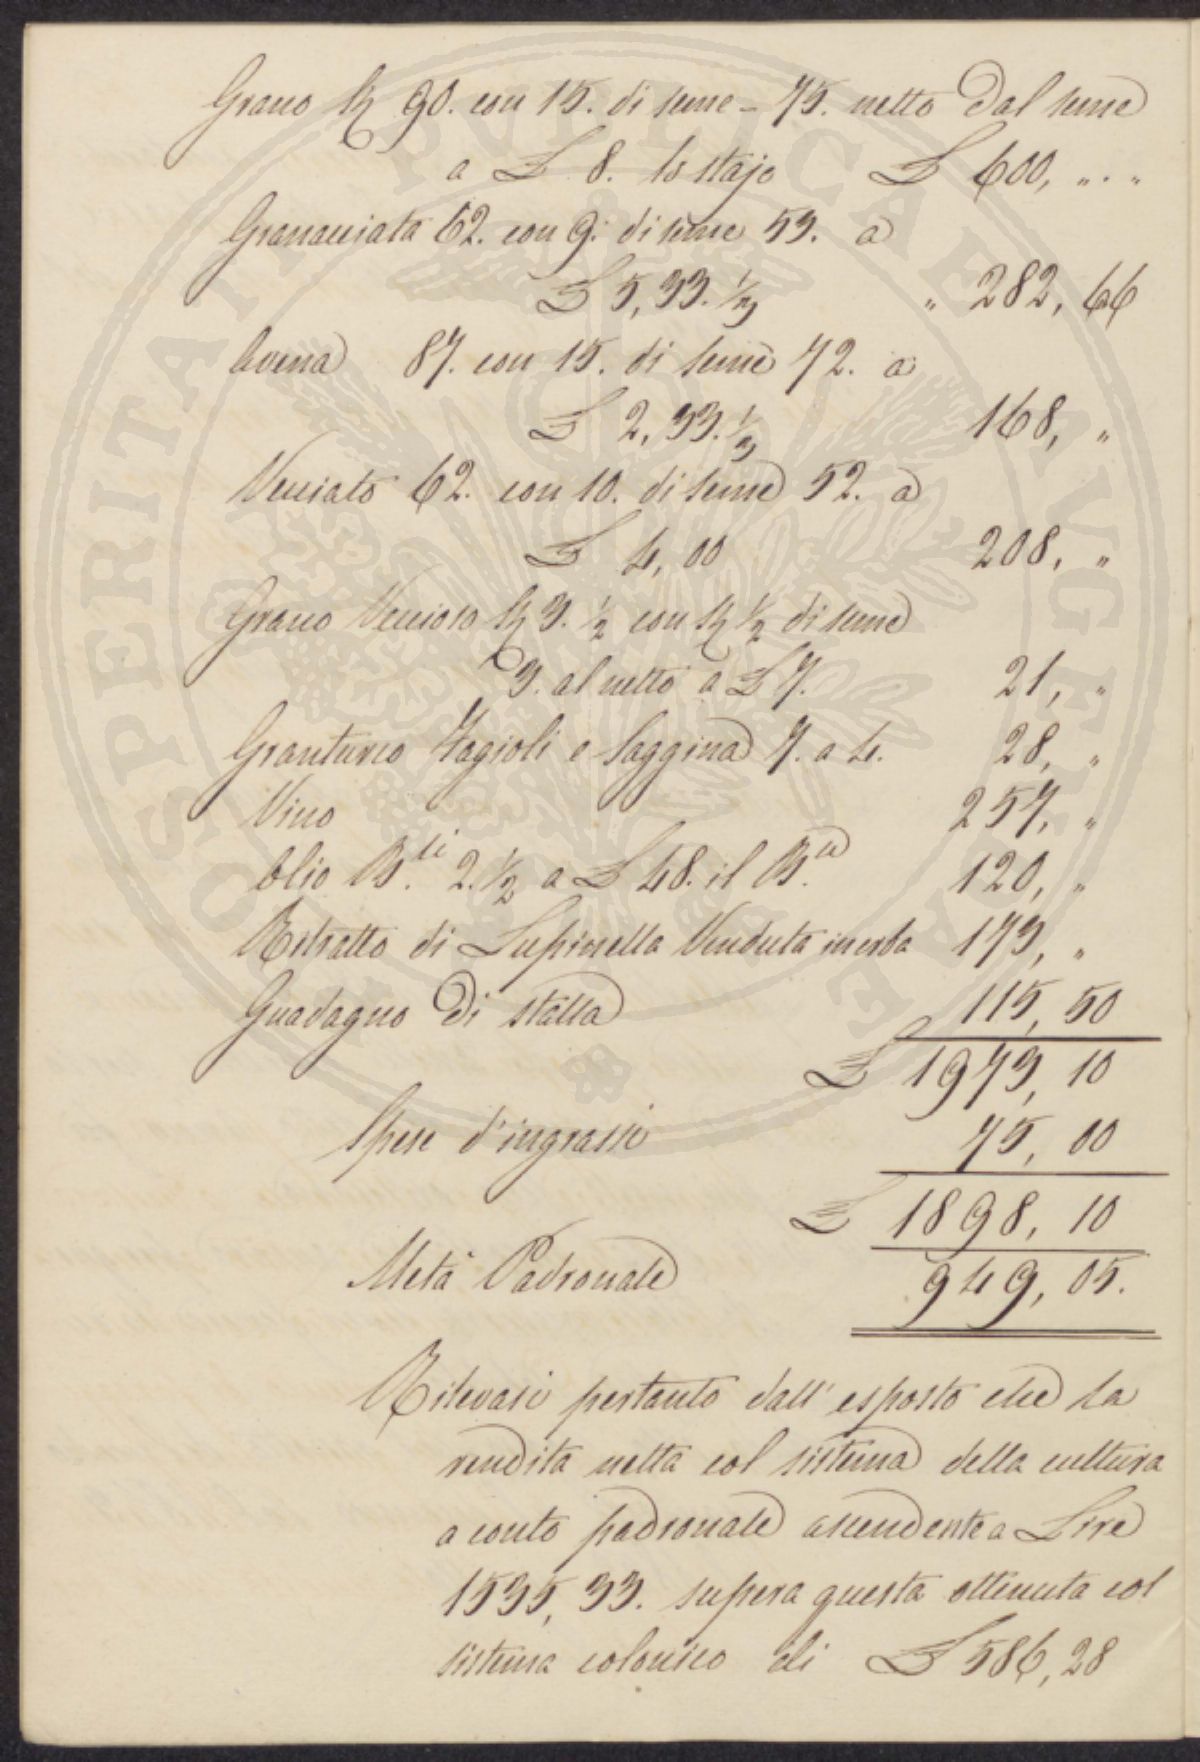 Grano St 90. con 15. di seme - 75. netto dal seme
a £ 8. lo stajo £ 600, " . "
Granacciata 62. con 9. di seme 53. a
£ 5,33.⅓ " 282, 66
Avena 87. con 15. di seme 72. a
£ 2,33.⅓ 168, "
Vecciato 62. con 10. di seme 52. a
£ 4,00 208, "
Grano Veccioso St 3.½ con St ½ di seme
3. al netto a £ 7. 21, "
Granturco Fagioli e Saggina 7. a 4. 28, "
Vino 257, "
Olio B.li 2.½ a £ 48. il B.le 120, "
Ritratto di Lupinella Venduta in erba 173, "
Guadagno di stalla 115,50
£ 1973,10
Spese d'ingrassi 75,00
£ 1898,10
Metà Padronale 949,05.
Rilevasi pertanto dall'esposto che la
rendita netta col sistema della cultura
a conto padronale ascendente a Lire
1535,33. supera questa ottenuta col
sistema colonico di £ 586,28